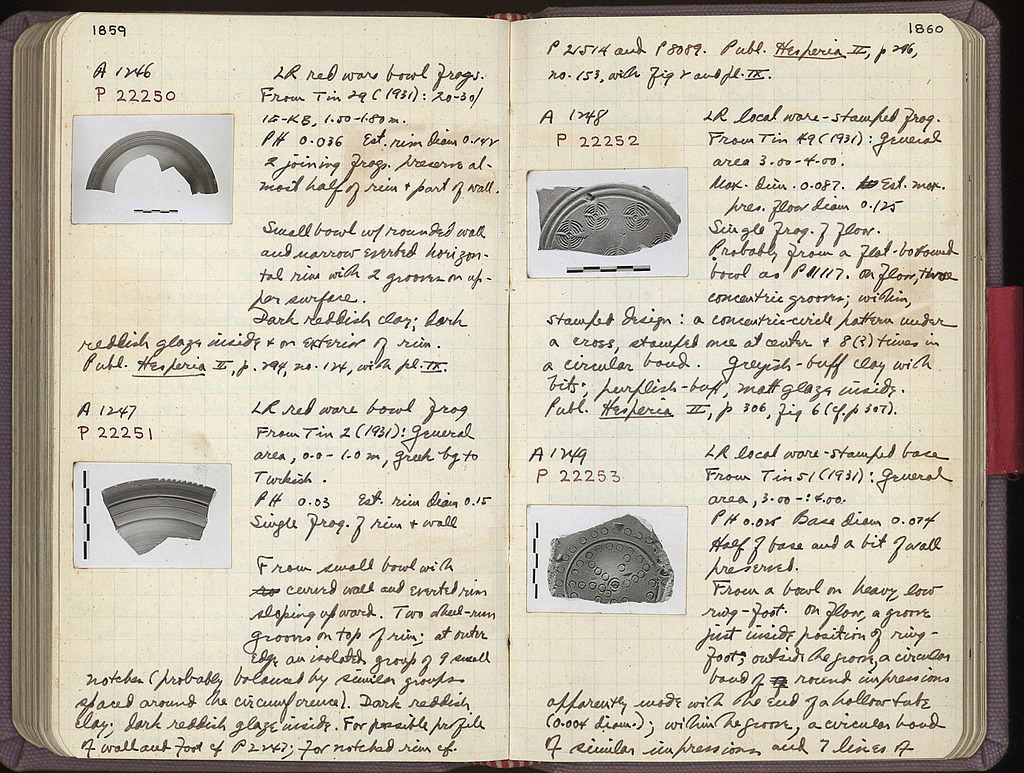 1859
A 1246
P 22250
LR red ware bowl frags.
From Tin 29 (1931): 20-30/
IE-KB, 1.50-1.80 m.
PH 0.036 Est. rim diam 0.142
2 joining frags. preserve al-
most half of rim + part of wall.
Small bowl w/ rounded wall
and narrow everted horizon-
tal rim with 2 grooves on up-
per surface.
Dark reddish clay; dark
reddish glaze inside + on exterior of rim.
Publ. Hesperia II, p. 294, no. 124, with pl. IX.
A 1247
P 22251
LR red ware bowl frag
From Tin 2 (1931): General
area, 0.0 - 1.0 m, Greek bg to
Turkish.
PH 0.03 Est. rim diam 0.15
Single frag. of rim + wall
From small bowl with
curved wall and everted rim
sloping upward. Two wheel-run
grooves on top of rim; at outer
edge an isolated group of 9 small
notches (probably balanced by similar groups
spaced around the circumference). Dark reddish
clay; dark reddish glaze inside. For possible profile
of wall and foot cf P 2247; for notched rim cf.
1860
P 21514 and P 8089. Publ. Hesperia II, p 296,
no. 153, with fig 2 and pl. IX.
A 1248
P 22252
LR local ware - stamped frag.
From Tin 49 (1931): General
area 3.00-4.00.
Max. dim. 0.087. Est. max.
pres. floor diam 0.125
Single frag. of floor.
Probably from a flat-bottomed
bowl as P 1117. On floor, three
concentric grooves; within,
stamped design: a concentric-circle pattern under
a cross, stamped once at center + 8 (?) times in
a circular band. Greyish-buff clay with
bits; purplish-buff, matt glaze inside.
Publ. Hesperia II, p 306, fig 6 (cf. p 307).
A 1249
P 22253
LR local ware - stamped base
From Tin 51 (1931): General
area, 3.00 - 4.00.
PH 0.025 Base diam 0.074
Half of base and a bit of wall
preserved.
From a bowl on heavy low
ring-foot. On floor, a groove
just inside position of ring-
foot; outside the groove, a circular
band of round impressions
apparently made with the end of a hollow tube
(0.004 diam.); within the groove, a circular band
of similar impressions and 7 lines of